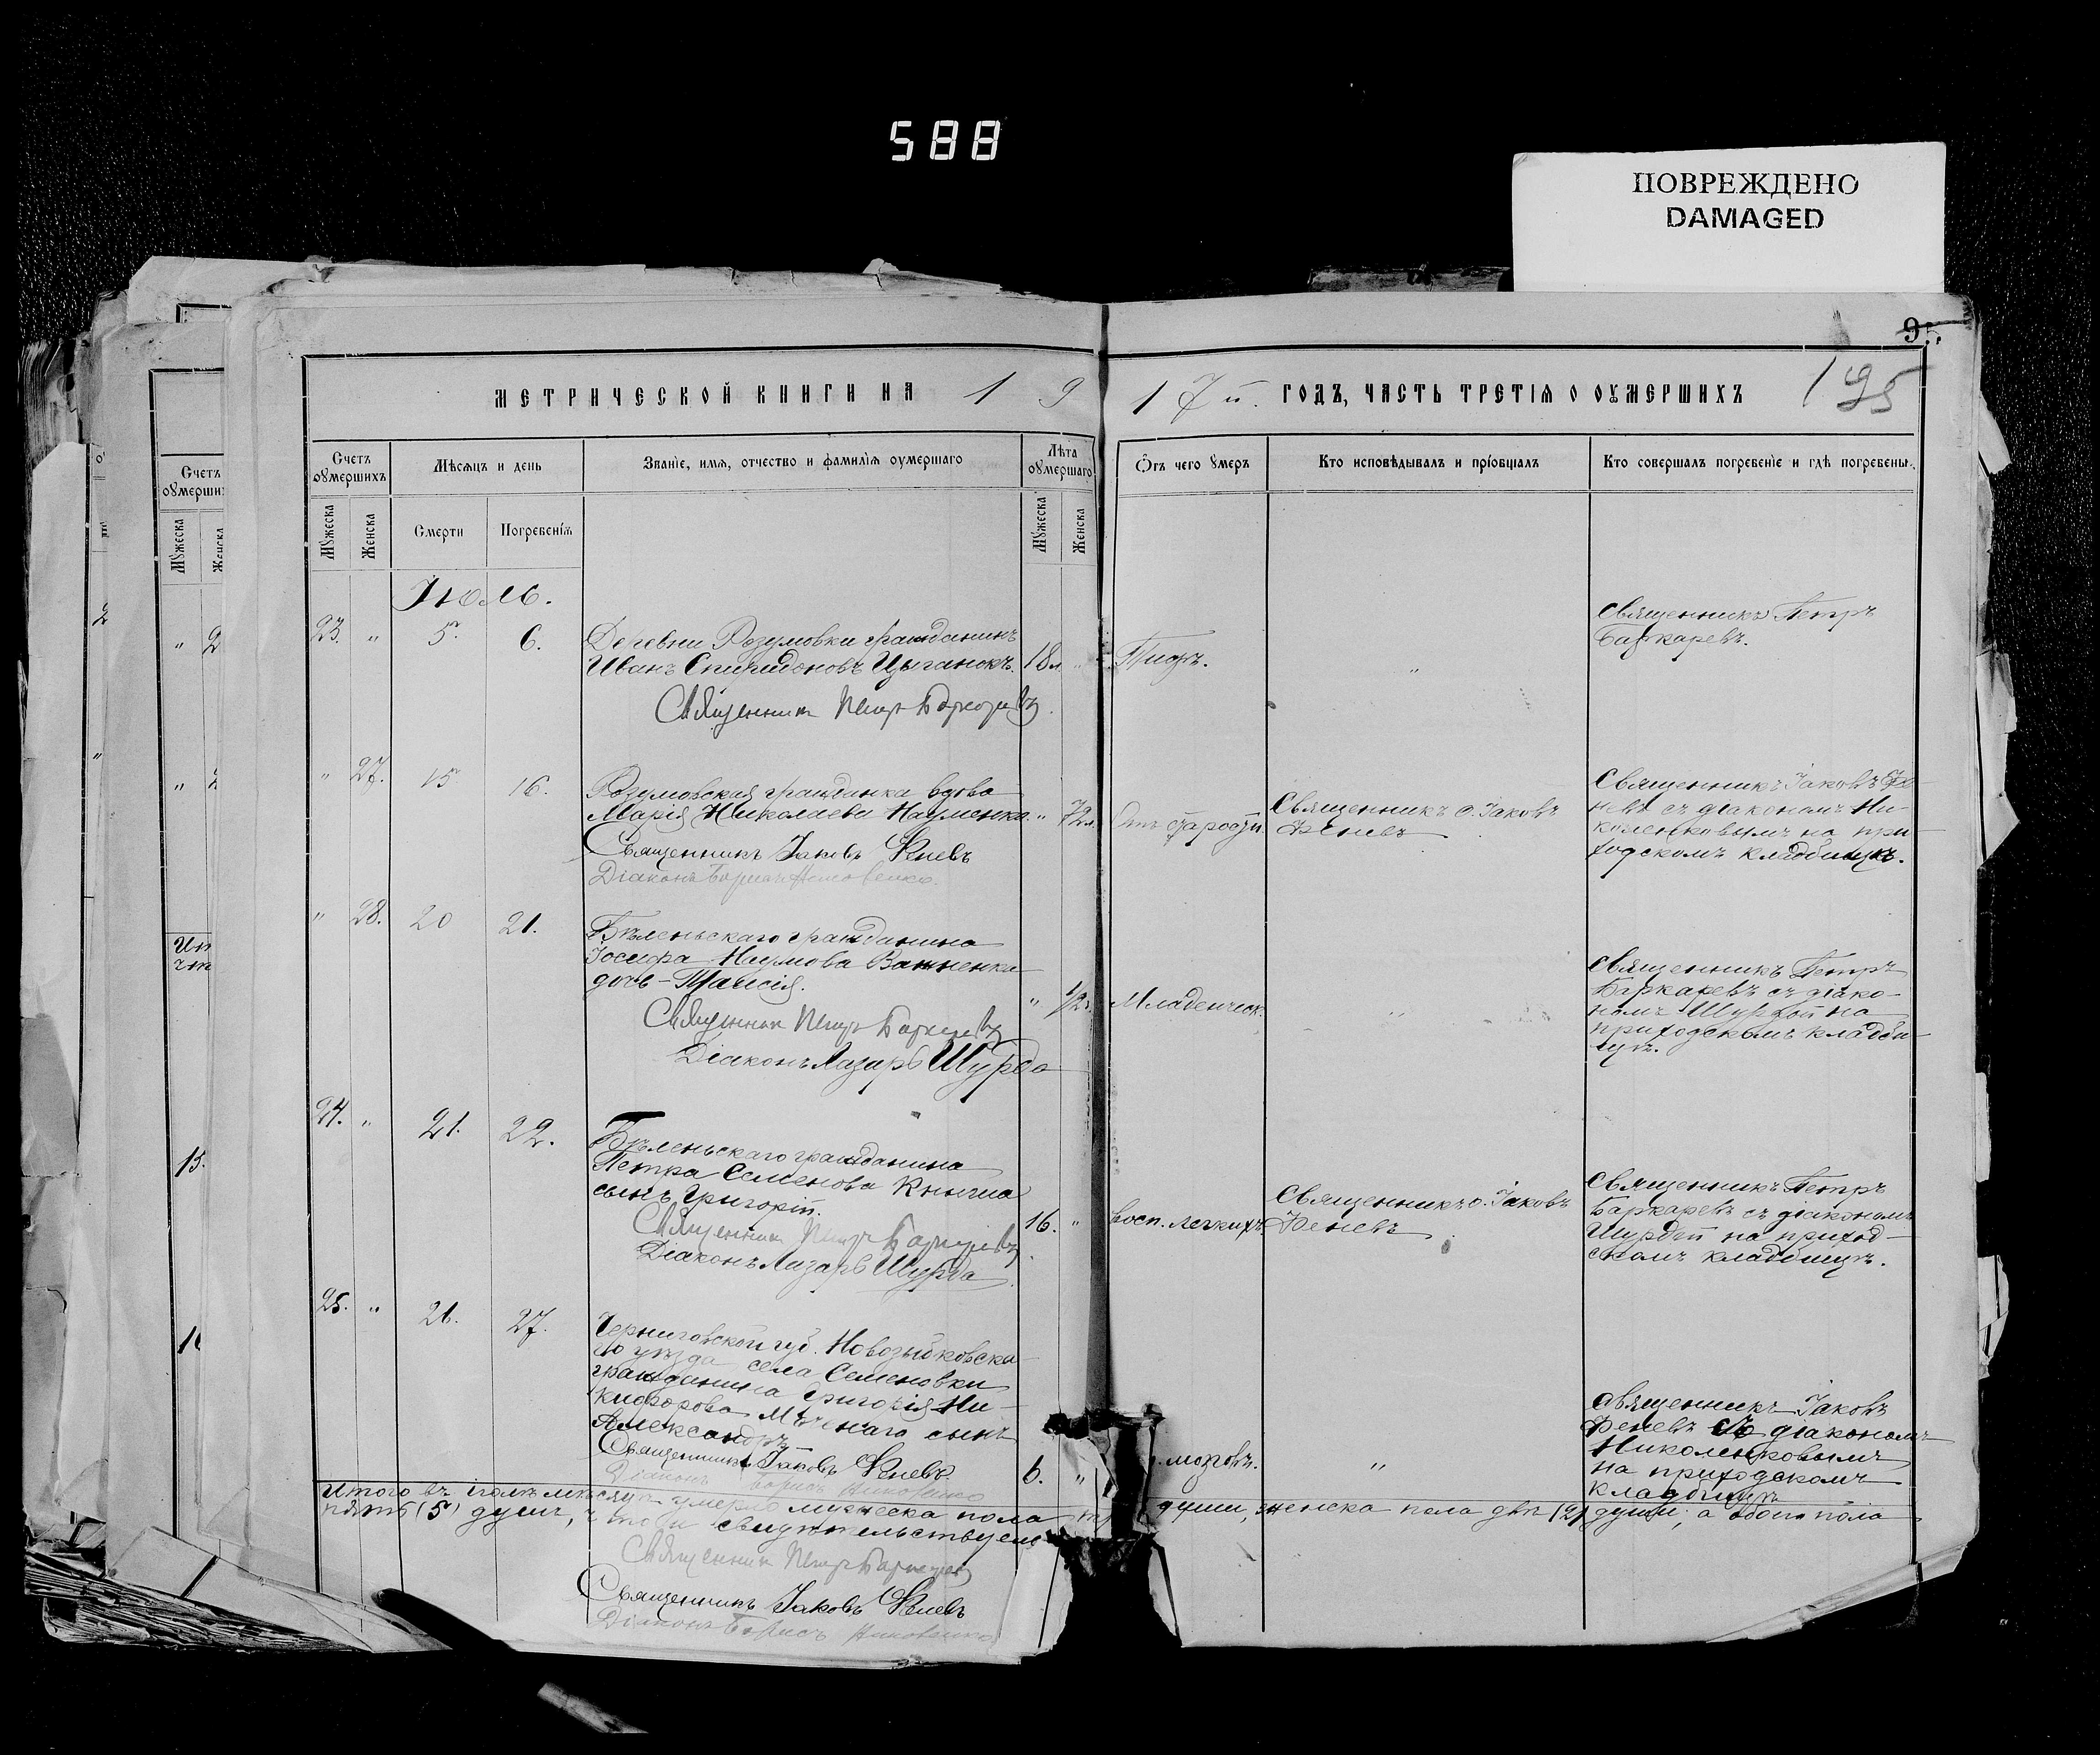 588
ПОВРЕЖДЕНО
DAMAGED
95
МЕТРИЧЕСКОЙ КНИГИ НА 1917й. ГОДЪ, ЧАСТЬ ТРЕТІѦ О ОУМЕРШИХЪ
195
Счетъ оумершихъ
Мѣсяцъ и день
Званіе, имя, отчество и фамилія оумершаго
Лѣта оумершаго
Отъ чего умеръ
Кто исповѣдывалъ и пріобщалъ
Кто совершалъ погребеніе и гдѣ погребены
Мужеска
Женска
Смерти
Погребенія
Мужеска
Женска
Іюль.
23. " 5. 6.
Деревни Розумовки гражданинъ
Иванъ Спиридоновъ Цыганокъ.
18л. "
Тифъ.
"
Священникъ Петръ
Баркаревъ.
Священникъ Петръ Баркаревъ
" 27. 15 16.
Розумовская гражданка вдова
Марія Николаева Науменко
" 72л.
Отъ старости.
Священникъ о. Іаковъ
Феневъ
Священникъ Іаковъ Фе-
невъ съ діакономъ Ни-
коленковымъ на при-
ходскомъ кладбищѣ.
Священникъ Іаковъ Феневъ
Діаконъ
" 28. 20 21.
Бѣленьскаго гражданина
Іосифа Наумова Важненка
дочь - Таисія.
" 1/2г.
Младенческ.
"
Священникъ Петръ
Баркаревъ съ діако-
номъ Шурдой на
приходскомъ кладби-
щѣ.
Священникъ Петръ Баркаревъ
Діаконъ Лазарь Шурда
24. " 21. 22.
Бѣленьскаго гражданина
Петра Семенова
сынъ Григорій.
16. "
Восп. легкихъ.
Священникъ о. Іаковъ
Феневъ
Священникъ Петръ
Баркаревъ съ діакономъ
Шурдой на приход-
скомъ кладбищѣ.
Священникъ Петръ Баркаревъ
Діаконъ Лазарь Шурда
25. " 26. 27.
Черниговской губ. Новозыбковска-
го уѣзда села Семеновки
гражданина Григорія Ни-
кифорова сынъ
Александръ
6. "
мозговъ.
"
Священникъ Іаковъ
Феневъ съ діакономъ
Николенковымъ
на приходскомъ
кладбищѣ
Священникъ Іаковъ Феневъ
Діаконъ Борисъ
Итого въ іюлѣ мѣсяцѣ умерло мужеска пола души, женска пола двѣ (2) души, а обоего пола
пять (5) душъ, что и свидѣтельствуемъ
Священникъ Петръ Баркаревъ
Священникъ Іаковъ Феневъ
Діаконъ Борисъ